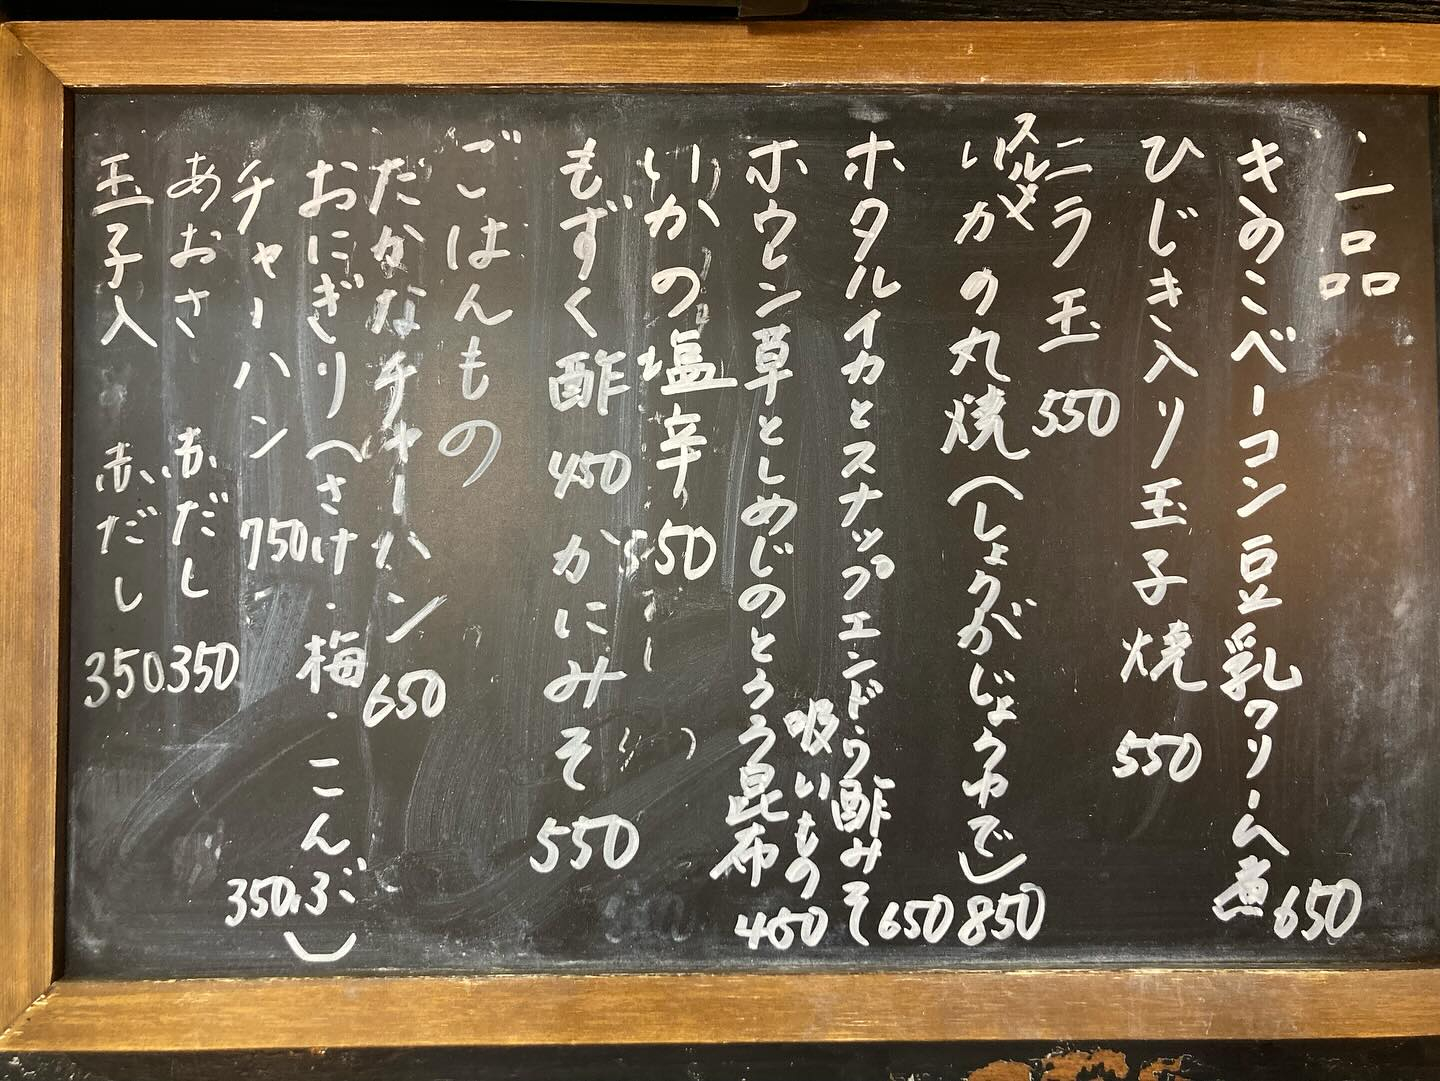 一品
きのこベーコン豆乳クリーム煮 650
ひじき入り玉子焼 550
ニラ玉 550
スルメ
いかの丸焼(しょうがじょうゆで) 850
ホタルイカとスナップエンドウ酢みそ 650
ホウレン草としめじのとろろ昆布
吸いもの 450
いかの塩辛 550
もずく酢 450 かにみそ 550
ごはんもの
たかなチャーハン 650
おにぎり(さけ・梅・こんぶ) 350.
チャーハン 750.
あおさ 赤だし 350
玉子入 赤だし 350.